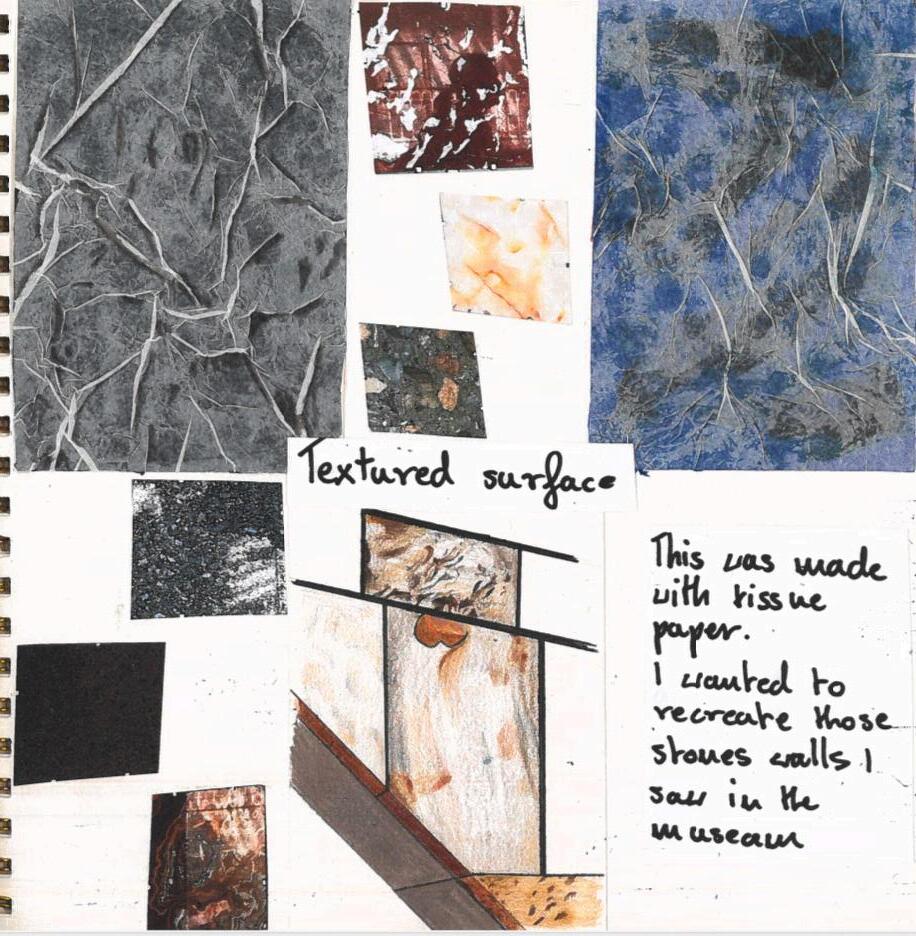 Textured surface
This was made
with tissue
paper.
I wanted to
recreate those
stones walls I
saw in the
museum